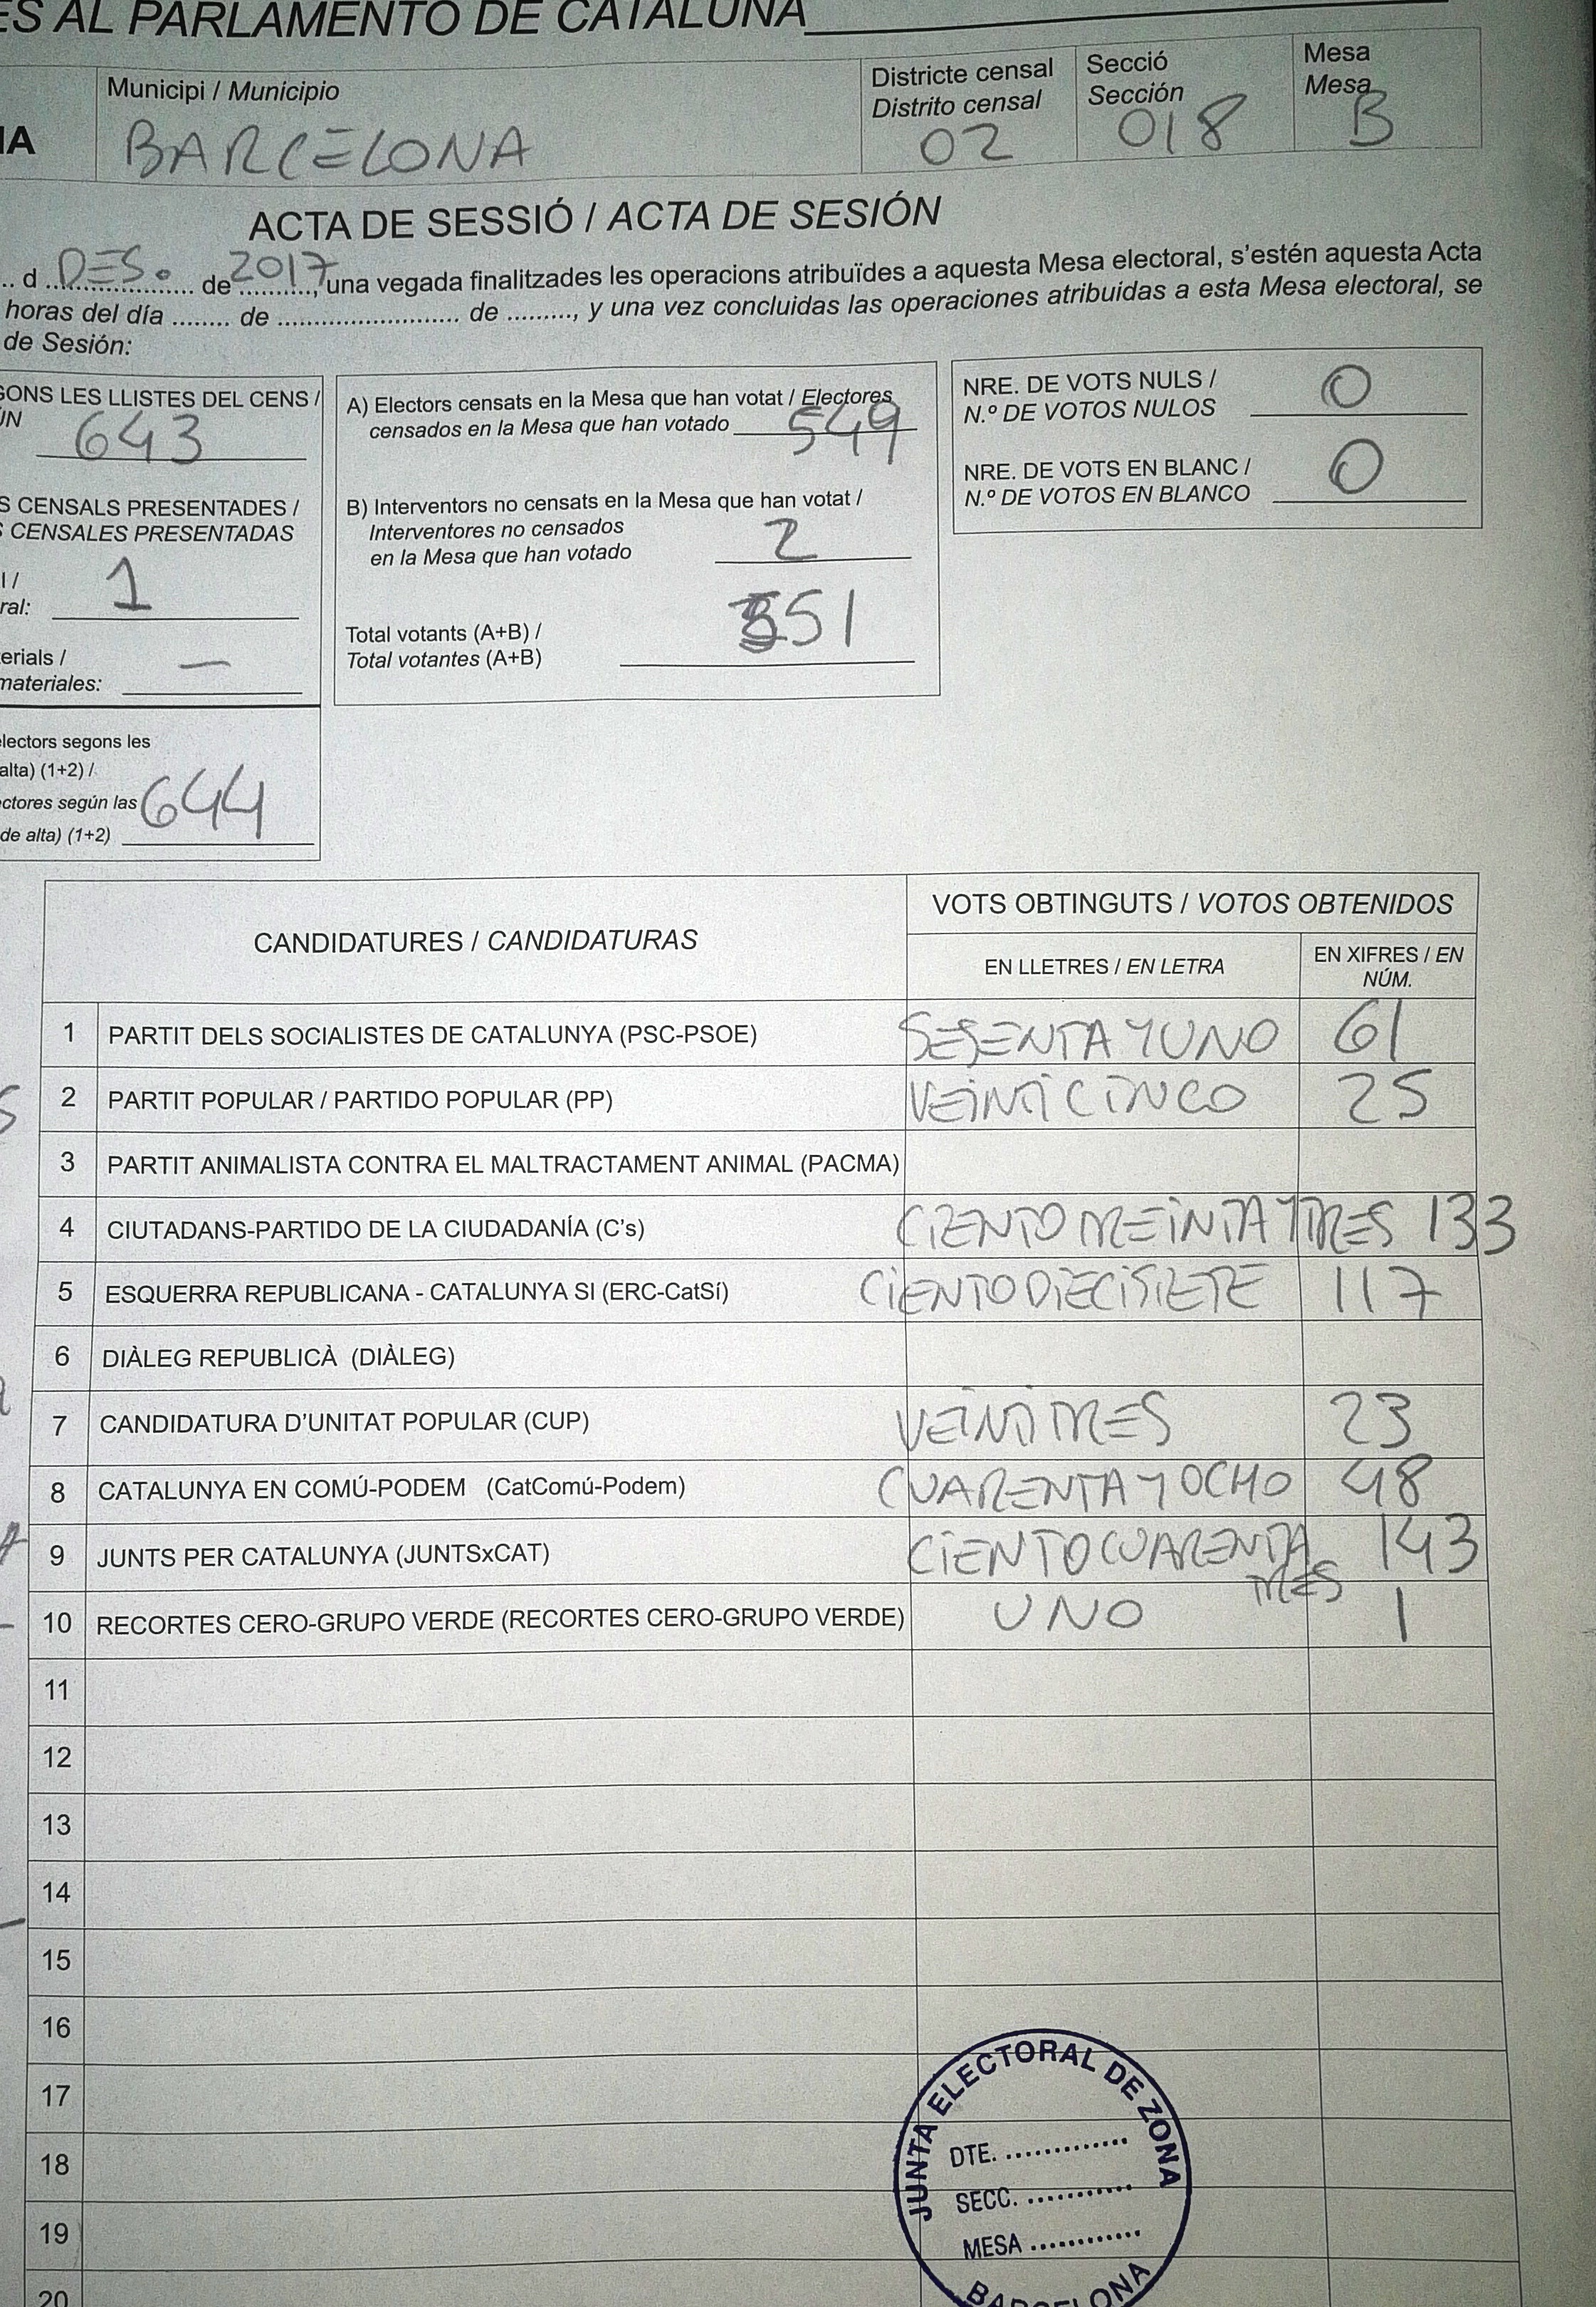 ES AL PARLAMENTO DE CATALUÑA
IA
Municipi / Municipio
BARCELONA
Districte censal
Distrito censal
02
Secció
Sección
018
Mesa
Mesa
B
ACTA DE SESSIÓ / ACTA DE SESIÓN
.. d DES. de 2017, una vegada finalitzades les operacions atribuïdes a aquesta Mesa electoral, s'estén aquesta Acta
horas del día ........ de .......................... de ........., y una vez concluidas las operaciones atribuidas a esta Mesa electoral, se
de Sesión:
GONS LES LLISTES DEL CENS /
ÚN
643
S CENSALS PRESENTADES /
S CENSALES PRESENTADAS
l /
ral: 1
erials /
materiales: —
electors segons les
alta) (1+2) /
ectores según las
de alta) (1+2) 644
A) Electors censats en la Mesa que han votat / Electores
censados en la Mesa que han votado 549
B) Interventors no censats en la Mesa que han votat /
Interventores no censados
en la Mesa que han votado 2
Total votants (A+B) /
Total votantes (A+B) 551
NRE. DE VOTS NULS /
N.º DE VOTOS NULOS 0
NRE. DE VOTS EN BLANC /
N.º DE VOTOS EN BLANCO 0
CANDIDATURES / CANDIDATURAS
VOTS OBTINGUTS / VOTOS OBTENIDOS
EN LLETRES / EN LETRA
EN XIFRES / EN
NÚM.
1 PARTIT DELS SOCIALISTES DE CATALUNYA (PSC-PSOE) SESENTA Y UNO 61
2 PARTIT POPULAR / PARTIDO POPULAR (PP) VEINTICINCO 25
3 PARTIT ANIMALISTA CONTRA EL MALTRACTAMENT ANIMAL (PACMA)
4 CIUTADANS-PARTIDO DE LA CIUDADANÍA (C's) CIENTO TREINTA Y TRES 133
5 ESQUERRA REPUBLICANA - CATALUNYA SI (ERC-CatSí) CIENTO DIECISIETE 117
6 DIÀLEG REPUBLICÀ (DIÀLEG)
7 CANDIDATURA D'UNITAT POPULAR (CUP) VEINTITRES 23
8 CATALUNYA EN COMÚ-PODEM (CatComú-Podem) CUARENTA Y OCHO 48
9 JUNTS PER CATALUNYA (JUNTSxCAT) CIENTO CUARENTA TRES 143
10 RECORTES CERO-GRUPO VERDE (RECORTES CERO-GRUPO VERDE) UNO 1
11
12
13
14
15
16
17
18
19
20
JUNTA ELECTORAL DE ZONA
DTE. .............
SECC. ...........
MESA ............
BARCELONA